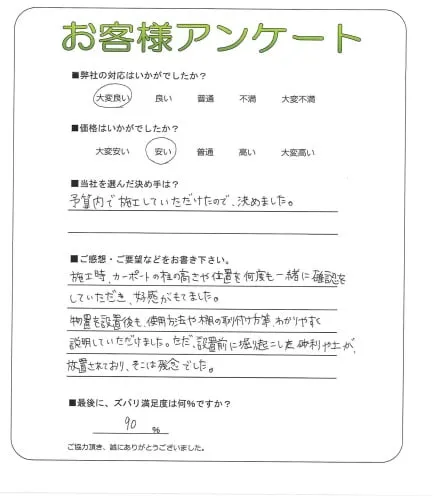 お客様アンケート
■弊社の対応はいかがでしたか？
大変良い 良い 普通 不満 大変不満
■価格はいかがでしたか？
大変安い 安い 普通 高い 大変高い
■当社を選んだ決め手は？
予算内で施工していただけたので、決めました。
■ご感想・ご要望などをお書き下さい。
施工時、カーポートの柱の高さや位置を何度も一緒に確認を
していただき、好感がもてました。
物置を設置後も、使用方法や棚の取付け方等、わかりやすく
説明していただけました。ただ、設置前に掘り起こした砂利や土が、
放置されており、そこは残念でした。
■最後に、ズバリ満足度は何％ですか？
90 %
ご協力頂き、誠にありがとうございました。